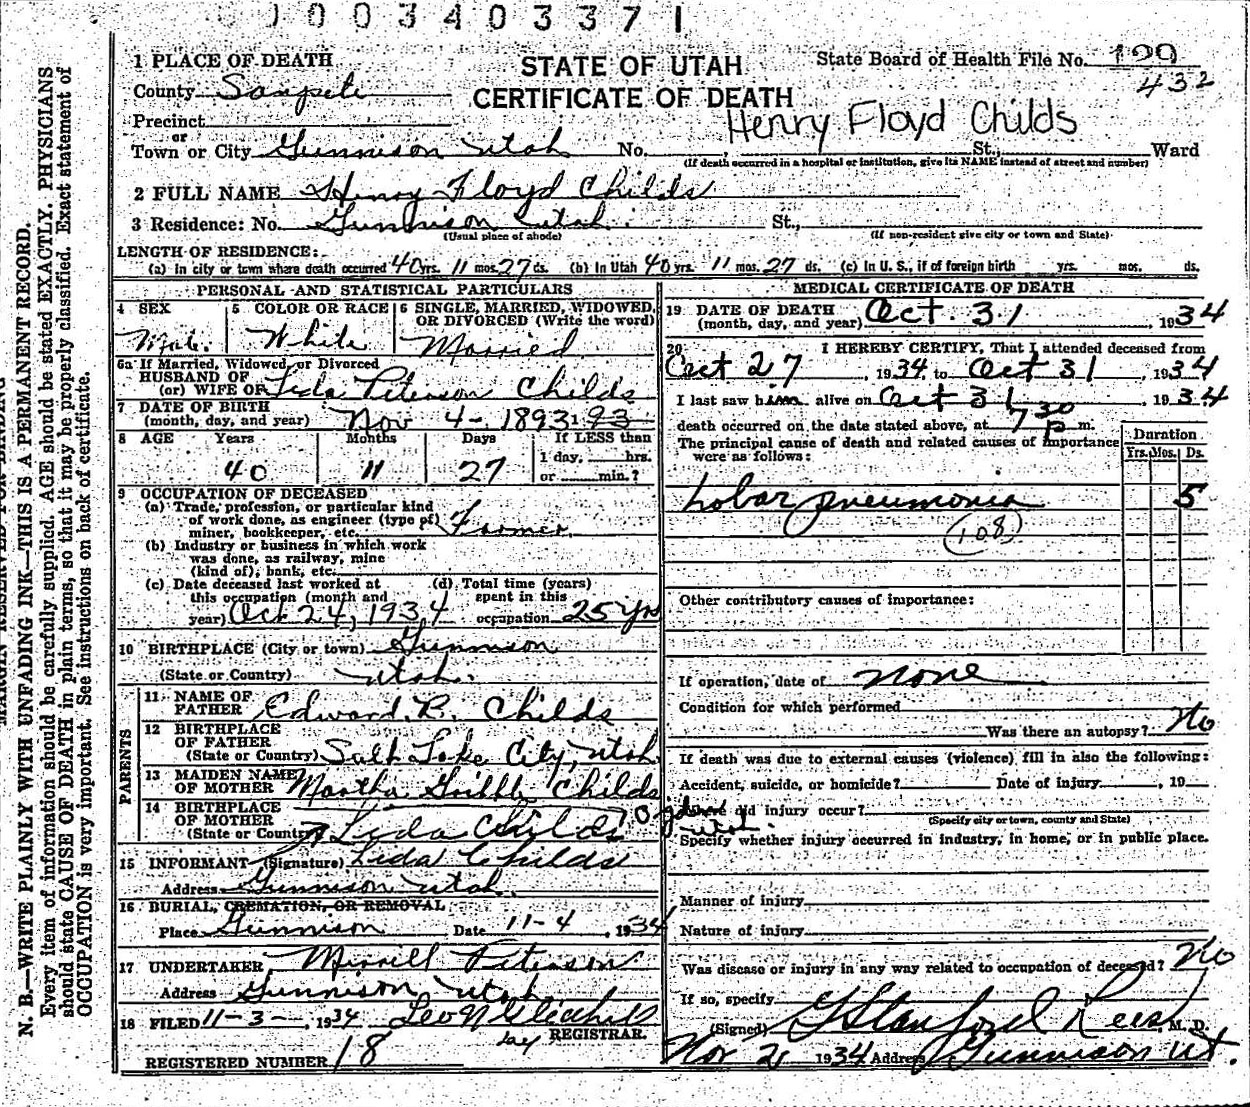 1003403371
STATE OF UTAH
CERTIFICATE OF DEATH
State Board of Health File No. 129
432
Henry Floyd Childs
1 PLACE OF DEATH
County Sanpete
Precinct
or
Town or City Gunnison Utah No. St., Ward
(If death occurred in a hospital or institution, give its NAME instead of street and number)
2 FULL NAME Henry Floyd Childs
3 Residence: No. Gunnison Utah. St.,
(Usual place of abode) (If non-resident give city or town and State)
LENGTH OF RESIDENCE:
(a) In city or town where death occurred 40 yrs. 11 mos. 27 ds. (b) In Utah 40 yrs. 11 mos. 27 ds. (c) In U. S., if of foreign birth yrs. mos. ds.
PERSONAL AND STATISTICAL PARTICULARS
4 SEX 5 COLOR OR RACE 6 SINGLE, MARRIED, WIDOWED, OR DIVORCED (Write the word)
Male. White Married
6a If Married, Widowed or Divorced
HUSBAND OF
(or) WIFE OF Leda Peterson Childs
7 DATE OF BIRTH
(month, day, and year) Nov 4- 1893 93
8 AGE Years Months Days If LESS than
1 day, hrs.
40 11 27 or min.?
9 OCCUPATION OF DECEASED
(a) Trade, profession, or particular kind
of work done, as engineer (type of)
miner, bookkeeper, etc. Farmer
(b) Industry or business in which work
was done, as railway, mine
(kind of); bank, etc.
(c) Date deceased last worked at (d) Total time (years)
this occupation (month and spent in this
year) Oct 24, 1934 occupation 25 yrs
10 BIRTHPLACE (City or town) Gunnison
(State or Country) Utah.
PARENTS
11 NAME OF
FATHER Edward R. Childs
12 BIRTHPLACE
OF FATHER
(State or Country) Salt Lake City, Utah
13 MAIDEN NAME
OF MOTHER Martha Gribble Childs
14 BIRTHPLACE
OF MOTHER
(State or Country) Leda Childs Ogden
Utah.
15 INFORMANT (Signature) Leda Childs
Address Gunnison Utah.
16 BURIAL, CREMATION, OR REMOVAL
Place Gunnison Date 11-4, 1934
17 UNDERTAKER Merrill Peterson
Address Gunnison Utah
18 FILED 11-3-, 1934 Leo N Gledhill
by REGISTRAR.
REGISTERED NUMBER 18
MEDICAL CERTIFICATE OF DEATH
19 DATE OF DEATH
(month, day, and year) Oct. 31, 1934
20 I HEREBY CERTIFY, That I attended deceased from
Oct 27, 1934 to Oct 31, 1934
I last saw him alive on Oct 31, 1934
death occurred on the date stated above, at 7 30 P m.
The principal cause of death and related causes of importance
were as follows:
Duration
Yrs. Mos. Ds.
Lobar pneumonia 5
(108)
Other contributory causes of importance:
If operation, date of none
Condition for which performed
Was there an autopsy? No
If death was due to external causes (violence) fill in also the following:
Accident, suicide, or homicide? Date of injury , 19
did injury occur?
(Specify city or town, county and State)
Specify whether injury occurred in industry, in home, or in public place.
Manner of injury
Nature of injury
Was disease or injury in any way related to occupation of deceased? No
If so, specify
(Signed) G Stanford Rees M. D.
Nov 2, 1934 Address Gunnison Ut.
N. B.—WRITE PLAINLY WITH UNFADING INK—THIS IS A PERMANENT RECORD.
Every item of information should be carefully supplied. AGE should be stated EXACTLY. PHYSICIANS
should state CAUSE OF DEATH in plain terms, so that it may be properly classified. Exact statement of
OCCUPATION is very important. See instructions on back of certificate.